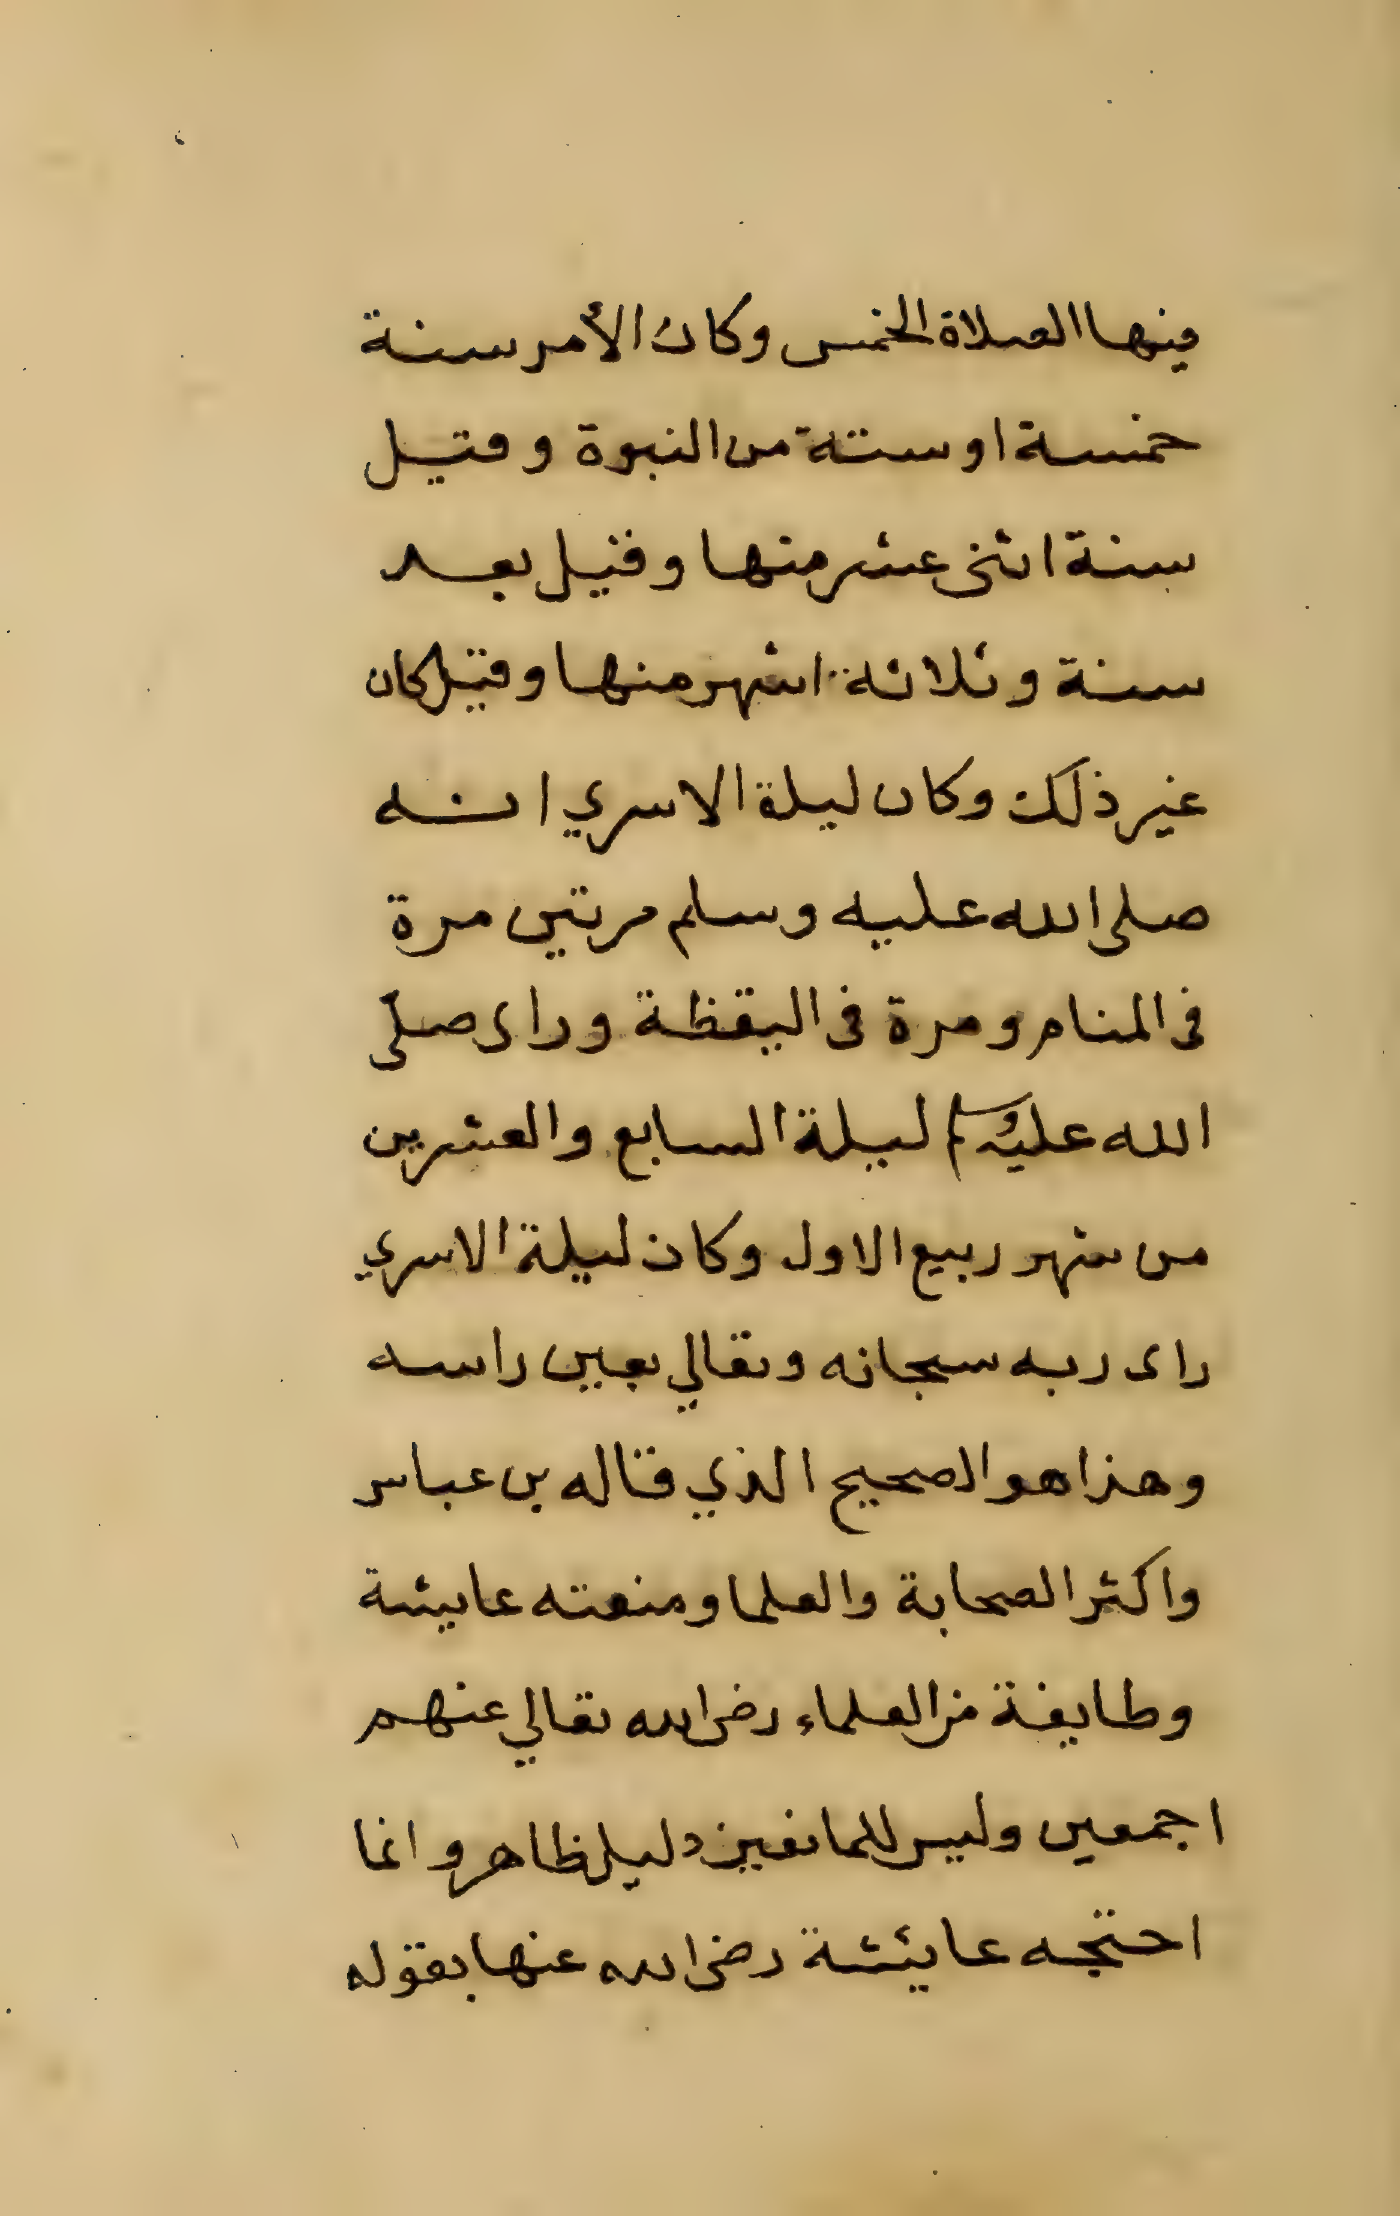 فيها الصلاة الخمس وكان الأمر سنة
خمسة او ستة من النبوة وقيل
سنة اثنى عشر منها وقيل بعد
سنة وثلاثة اشهر منها وقيل كان
غير ذلك وكان ليلة الاسري انه
صلى الله عليه وسلم مرتين مرة
فى المنام ومرة فى اليقظة وراى صلى
الله عليه وسلم ليلة السابع والعشرين
من شهر ربيع الاول وكان ليلة الاسري
راى ربه سبحانه وتعالي بعين راسه
وهذا هو الصحيح الذي قاله بن عباس
واكثر الصحابة والعلما ومنعته عايشة
وطايفة من العلماء رضى الله تعالي عنهم
اجمعين وليس للمانعين دليل ظاهر وانما
احتجه عايشة رضى الله عنها بقوله